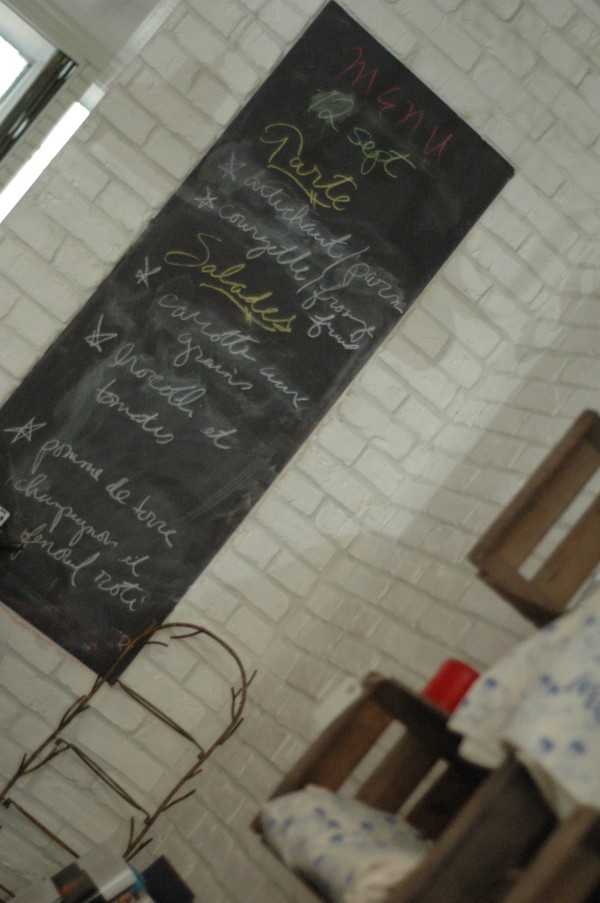 MENU
12 sept
Tarte
artichaut/parm
courgette/fromage
frais
Salades
carotte aux
grains
brocolli et
tomates
pomme de terre
champignon et
fenouil roti